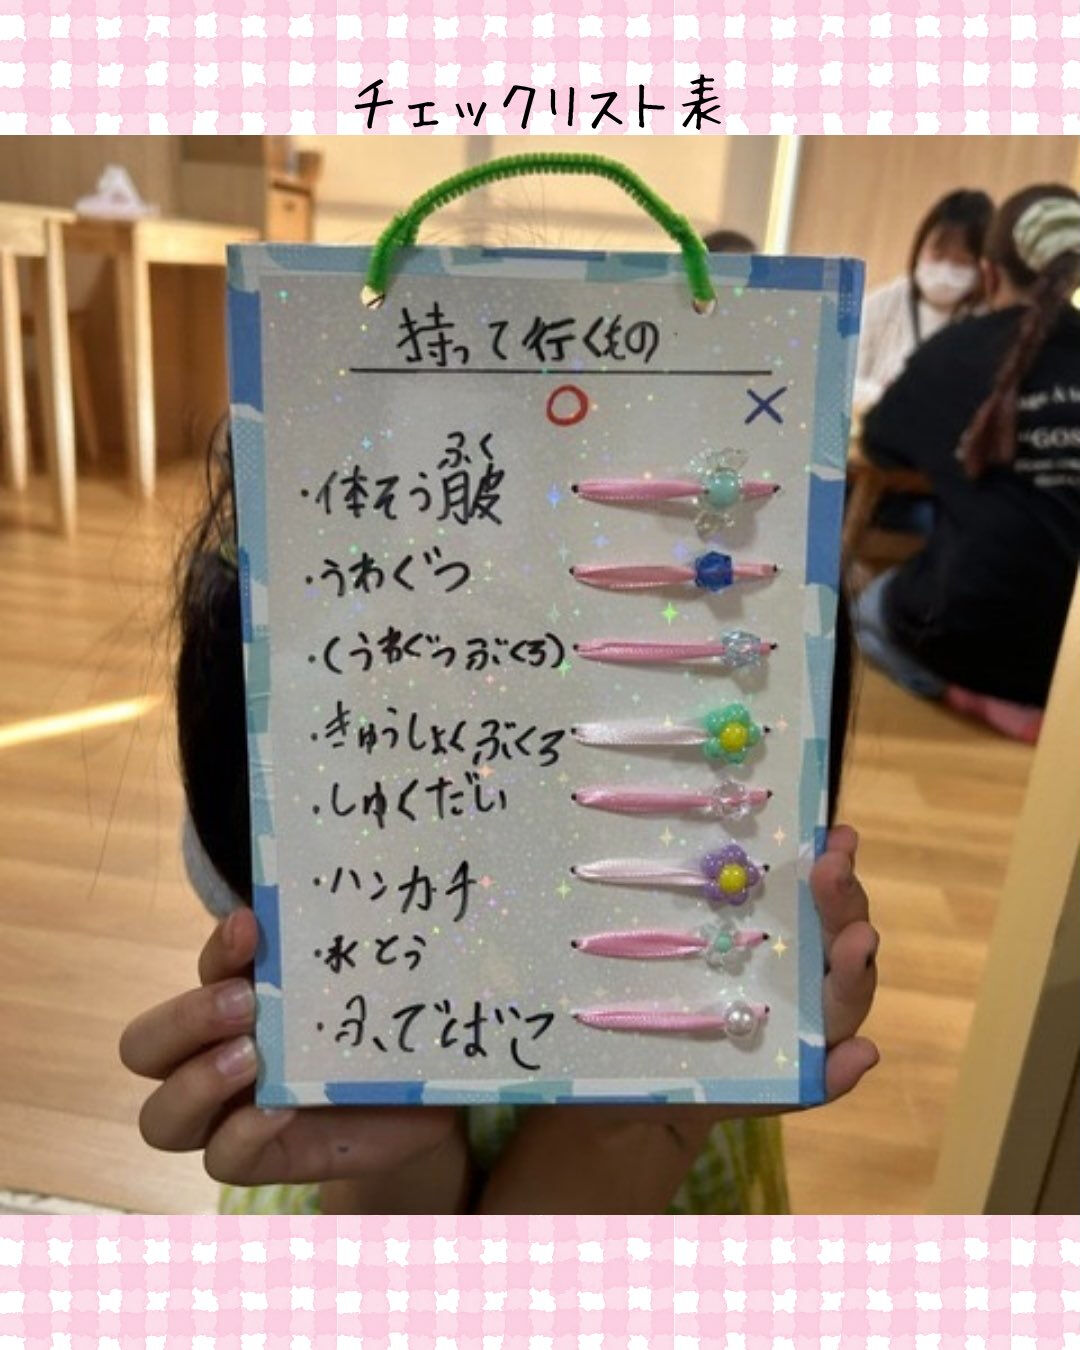 チェックリスト表
持って行くもの
○ ×
ふく
・体そう服
・うわぐつ
・(うわぐつぶくろ)
・きゅうしょくぶくろ
・しゅくだい
・ハンカチ
・水とう
・ふでばこ
"GOS